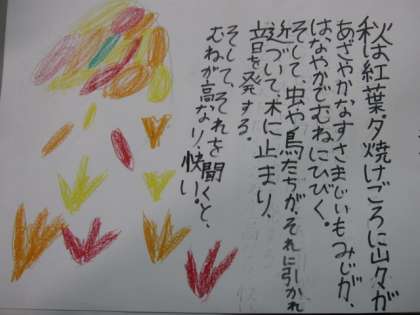 秋は紅葉。夕焼けごろに山々が
あざやかなすさまじいもみじが、
はなやかでむねにひびく。
そして、虫や鳥たちが、それに引かれ
近づいて、木に止まり、
音を発する。
そして、それを聞くと、
むねが高なり、快い。